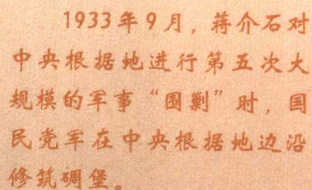 1933年9月，蒋介石对
中央根据地进行第五次大
规模的军事“围剿”时，国
民党军在中央根据地边沿
修筑碉堡。